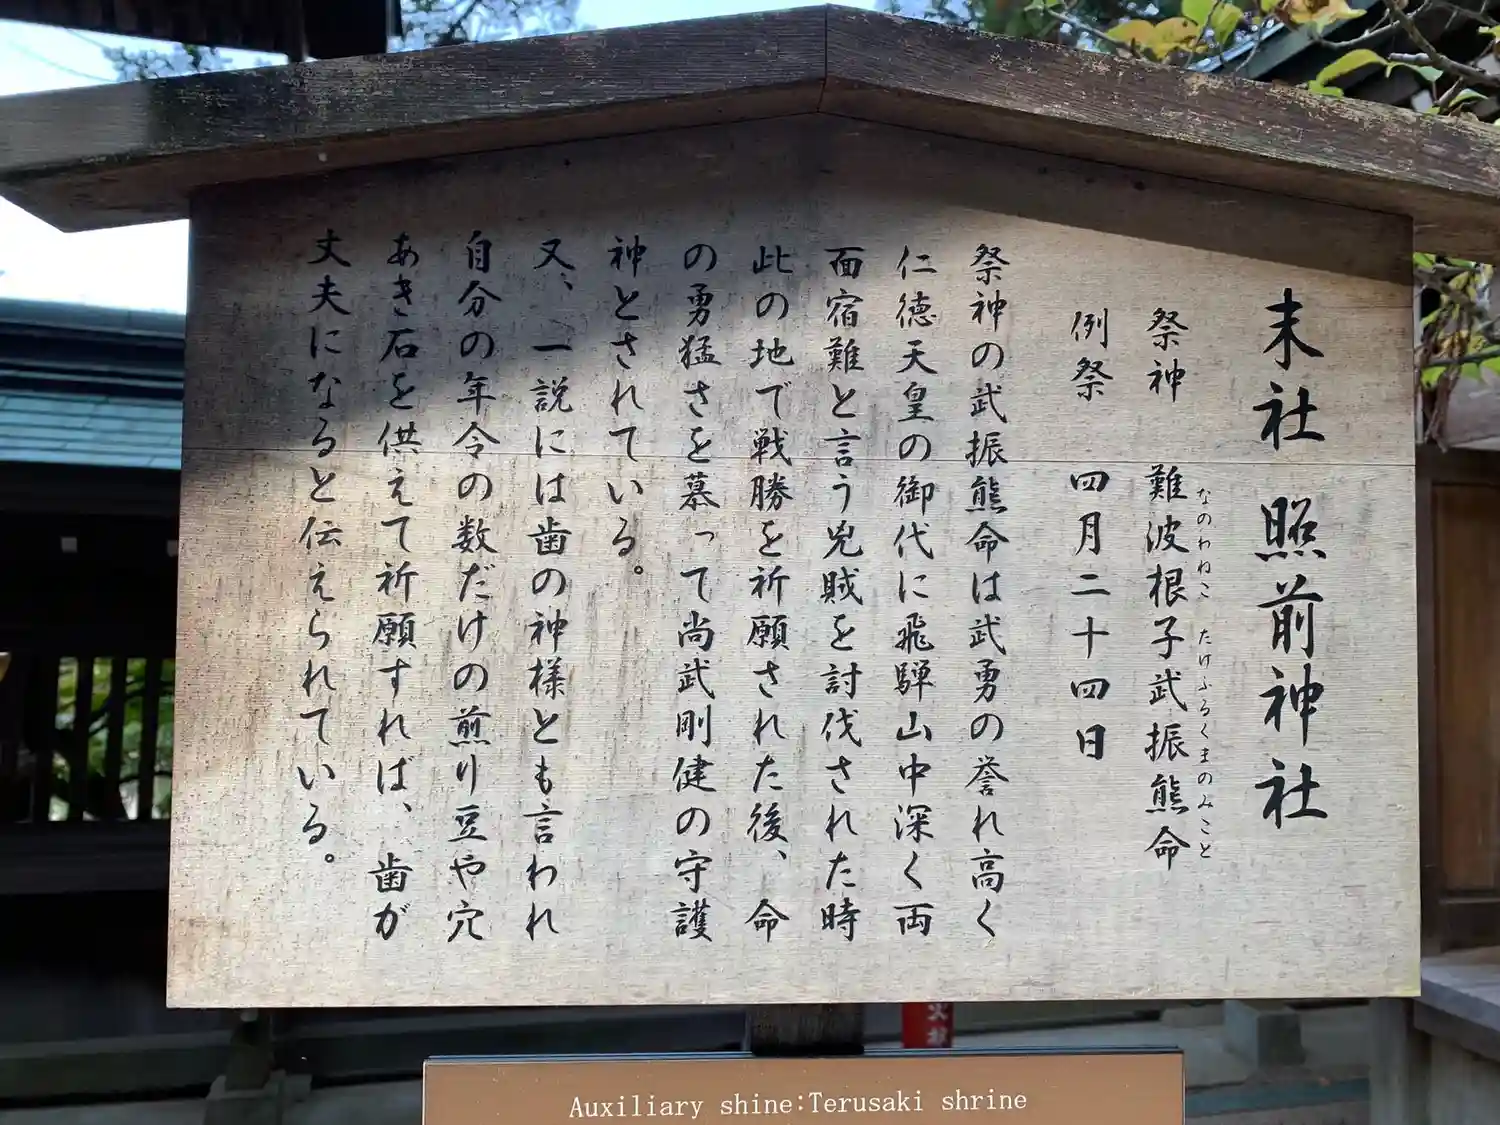 末社 照前神社
祭神 難波根子武振熊命
なのわねこ たけふるくまのみこと
例祭 四月二十四日
祭神の武振熊命は武勇の誉れ高く
仁徳天皇の御代に飛騨山中深く両
面宿難と言う兇賊を討伐された時
此の地で戦勝を祈願された後、命
の勇猛さを慕って尚武剛健の守護
神とされている。
又、一説には歯の神様とも言われ
自分の年令の数だけの煎り豆や穴
あき石を供えて祈願すれば、歯が
丈夫になると伝えられている。
Auxiliary shine:Terusaki shrine